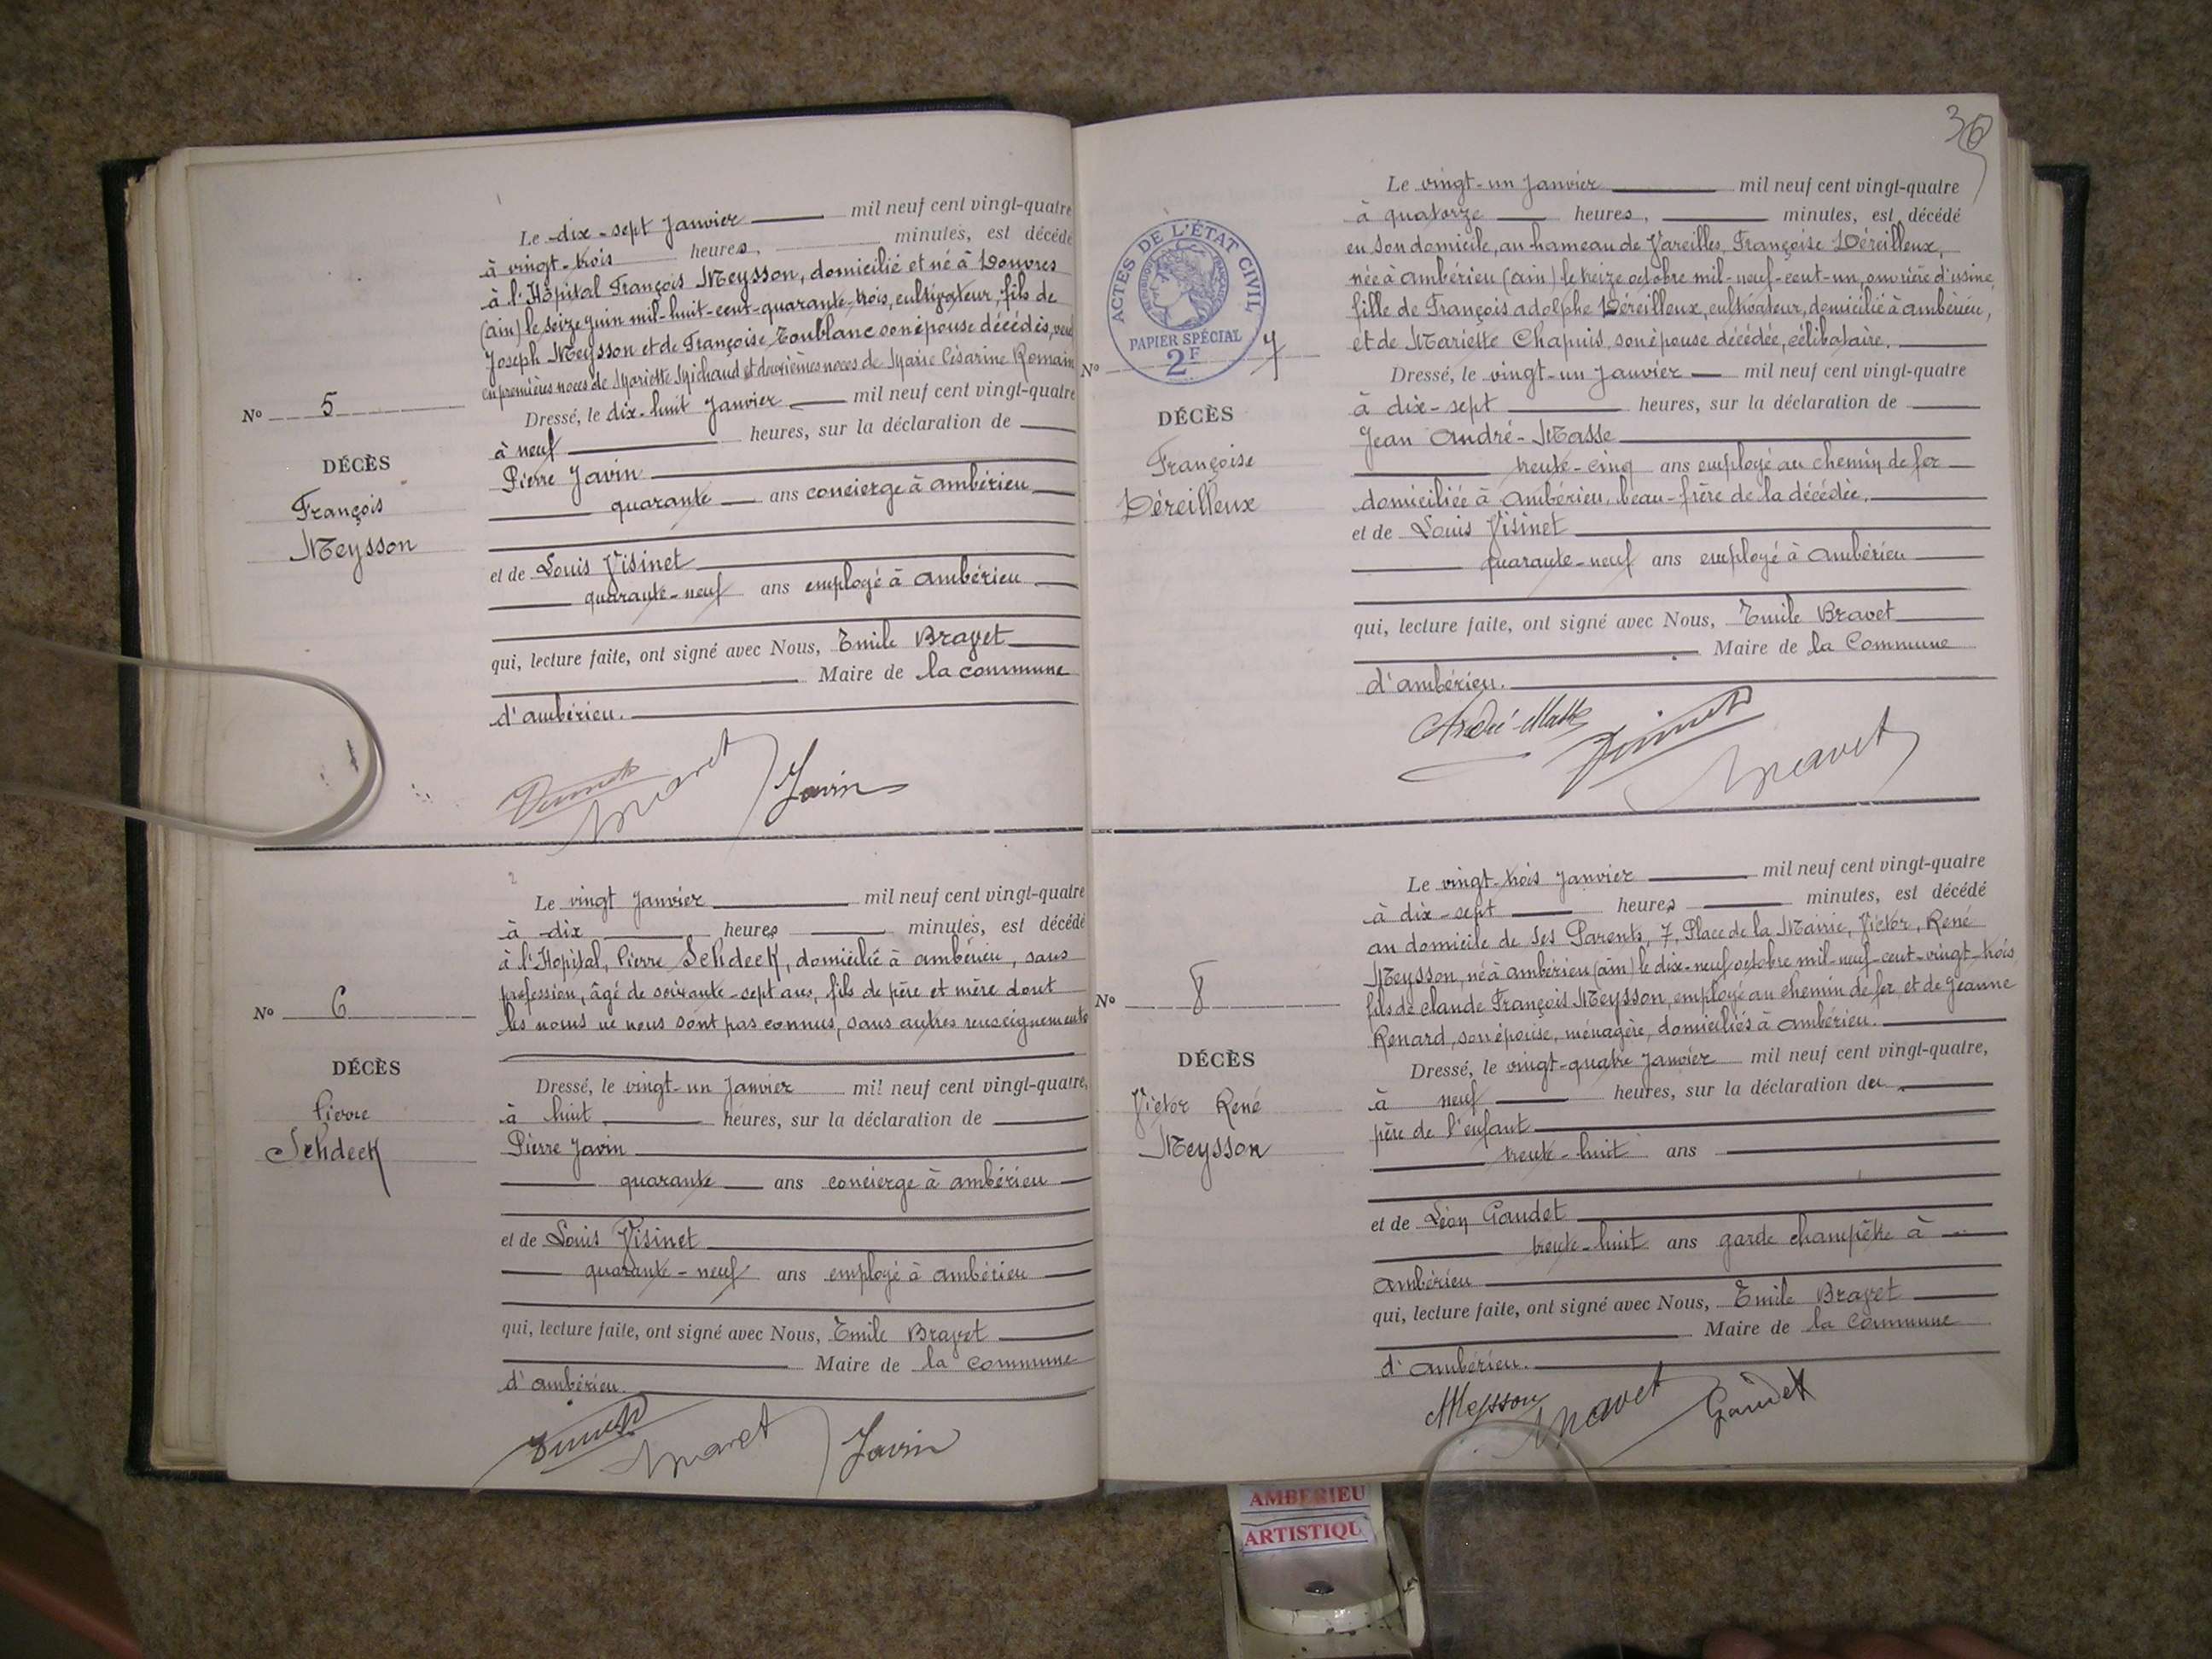 Le dix-sept Janvier mil neuf cent vingt-quatre
à vingt-trois heures, minutes, est décédé
à l'Hôpital François Meysson, domicilié et né à Douvres
(ain) le seize juin mil-huit-cent-quarante-trois, cultivateur, fils de
Joseph Meysson et de Françoise Toublanc son épouse décédés, veuf
en premières noces de Mariette Michaud et deuxièmes noces de Marie Césarine Romain
Nº 5
Dressé, le dix-huit Janvier mil neuf cent vingt-quatre
à neuf heures, sur la déclaration de
DÉCÈS
Pierre Javin
François
quarante ans concierge à ambérieu
Meysson
et de Louis Visinet
quarante-neuf ans employé à ambérieu
qui, lecture faite, ont signé avec Nous, Emile Bravet
Maire de la commune
d'ambérieu.
Visinet Bravet Javin
Le vingt Janvier mil neuf cent vingt-quatre
à dix heures minutes, est décédé
à l'Hopital, Pierre Sehdeck, domicilié à ambérieu, sans
profession, âgé de soixante-sept ans, fils de père et mère dont
les noms ne nous sont pas connus, sans autres renseignements
Nº 6
DÉCÈS
Dressé, le vingt-un Janvier mil neuf cent vingt-quatre,
Pierre
à huit heures, sur la déclaration de
Sehdeck
Pierre Javin
quarante ans concierge à ambérieu
et de Louis Visinet
quarante-neuf ans employé à ambérieu
qui, lecture faite, ont signé avec Nous, Emile Bravet
Maire de la Commune
d'ambérieu.
Visinet Bravet Javin
36
Le vingt-un Janvier mil neuf cent vingt-quatre
à quatorze heures, minutes, est décédé
en son domicile, au hameau de Vareilles, Françoise Déreilleux,
née à ambérieu (ain) le treize octobre mil-neuf-cent-un, ouvrière d'usine,
fille de François adolphe Déreilleux, cultivateur, domicilié à ambérieu,
et de Mariette Chapuis, son épouse décédée, célibataire.
ACTES DE L'ÉTAT CIVIL
RÉPUBLIQUE FRANÇAISE
PAPIER SPÉCIAL
2F
Nº 7
Dressé, le vingt-un Janvier mil neuf cent vingt-quatre
à dix-sept heures, sur la déclaration de
DÉCÈS
Jean André-Masse
Françoise
trente-cinq ans employé au chemin de fer
Déreilleux
domiciliée à Ambérieu, beau-frère de la décédée.
et de Louis Visinet
quarante-neuf ans employé à ambérieu
qui, lecture faite, ont signé avec Nous, Emile Bravet
Maire de la Commune
d'ambérieu.
André-Masse Visinet Bravet
Le vingt-trois Janvier mil neuf cent vingt-quatre
à dix-sept heures minutes, est décédé
au domicile de ses Parents, 7, Place de la Mairie, Victor, René
Meysson, né à ambérieu (ain) le dix-neuf octobre mil-neuf-cent-vingt-trois
fils de claude François Meysson, employé au chemin de fer, et de Jeanne
Renard, son épouse, ménagère, domiciliés à ambérieu.
Nº 8
DÉCÈS
Dressé, le vingt-quatre Janvier mil neuf cent vingt-quatre,
Victor René
à neuf heures, sur la déclaration du
Meysson
père de l'enfant
trente-huit ans
et de Léon Gaudet
trente-huit ans garde champêtre à
ambérieu
qui, lecture faite, ont signé avec Nous, Emile Bravet
Maire de la Commune
d'ambérieu.
Meysson Bravet Gaudet
AMBERIEU
ARTISTIQU